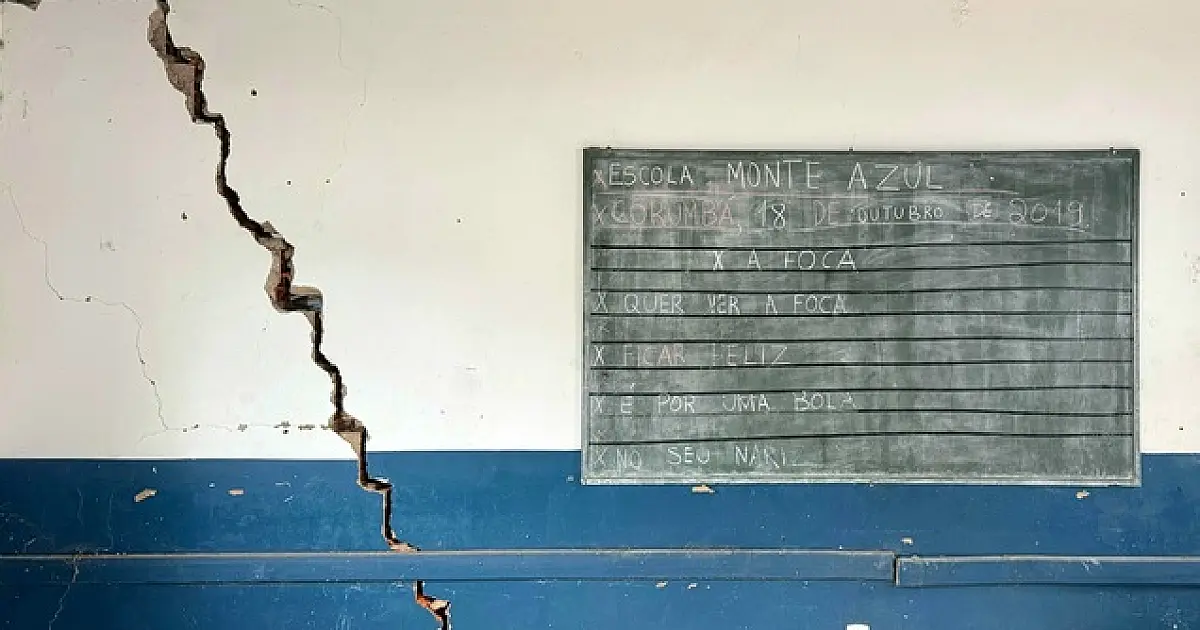 X ESCOLA MONTE AZUL
X CORUMBÁ, 18 DE OUTUBRO DE 2019
X A FOCA
X QUER VER A FOCA
X FICAR FELIZ
X É POR UMA BOLA
X NO SEU NARIZ